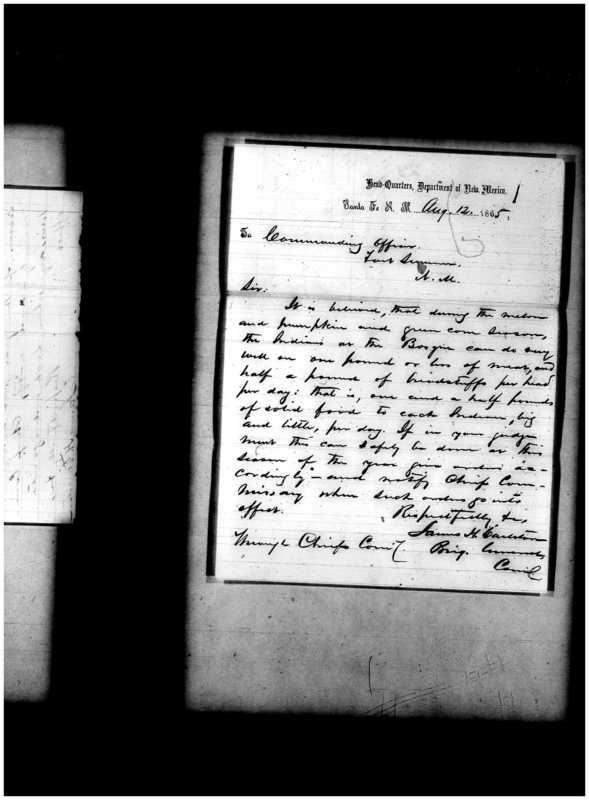 Head-Quarters, Department of New Mexico.
Santa Fe N. M. Aug. 12. 1865.
To Commanding Officer.
Fort Sumner.
N. M.
Sir:
It is believed, that during the melon
and pumpkin and green corn season,
the Indians at the Bosque can do very
well on one pound or less of meat, and
half a pound of breadstuffs per head
per day: that is, one and a half pounds
of solid food to each Indian, big
and little, per day. If in your judge-
ment this can safely be done at this
season of the year give orders ac-
cordingly - and notify Chief Com-
missary when such orders go into
effect.
Respectfully &c,
James H. Carleton
Brig. General
Com'd'g
Through Chief Com'y